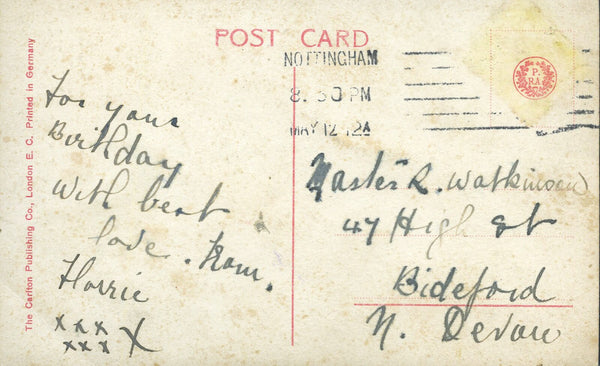 POST CARD
NOTTINGHAM
8. 30 PM
MAY 12 12
P.
RA.
The Carlton Publishing Co., London E. C. Printed in Germany
For your
Birthday
With best
love. From.
Horrie
x x x
x x x X
Master R. Watkinson
47 High St
Bideford
N. Devon